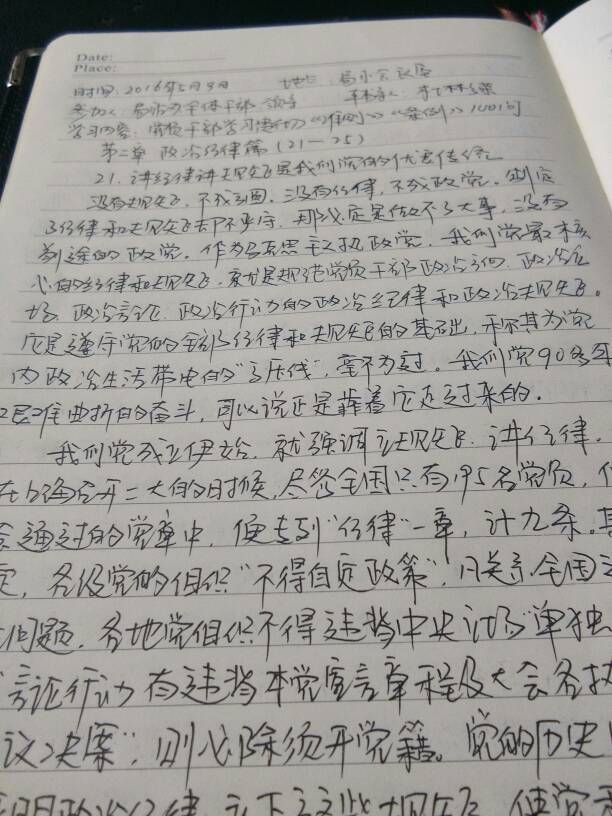 Date:
Place:
时间：2016年5月9日 地点：局小会议室
参加人：局 全体干部 领导 主持人：李
学习内容：党员干部学习《准则》《条例》100句
第二章 政治纪律篇（21—25）
21. 讲纪律讲规矩是我们党的优良传统
没有规矩，不成方圆。没有纪律，不成政党。制定
了纪律和规矩却不严守，那就定是做不了大事，没有
前途的政党。作为马克思主义执政党，我们党最核
心的纪律和规矩，就是规范党员干部政治方向、政治立
场、政治言论、政治行动的政治纪律和政治规矩。
它是遵守党的全部纪律和规矩的基础，称其为党
内政治生活带电的“高压线”，毫不为过。我们党90多年
艰难曲折的奋斗，可以说正是靠着它走过来的。
我们党成立伊始，就强调立规矩、讲纪律。
在上海召开二大的时候，尽管全国只有195名党员，
会通过的党章中，便专列“纪律”一章，计九条。其
定，各级党的组织“不得自定政策”，凡关系全国之
问题，各地党组织不得违背中央立场“单独
言论行动有违背本党宣言章程及大会各执
议决案”，则必除须开党籍。党的历史
明政治纪律、立下这些规矩，使党